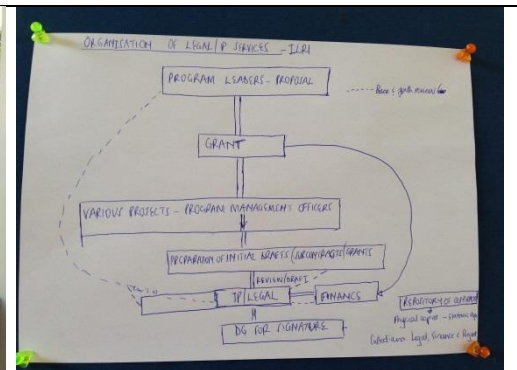 ORGANISATION OF LEGAL/IP SERVICES - ILRI
PROGRAM LEADERS - PROPOSAL
GRANT
VARIOUS PROJECTS - PROGRAM MANAGEMENT OFFICERS
PREPARATION OF INITIAL DRAFTS/SUBCONTRACTS/GRANTS
REVIEW/DRAFT
IP/LEGAL
FINANCE
DG FOR SIGNATURE
REPOSITORY OF
Physical copies -
Legal, Finance &